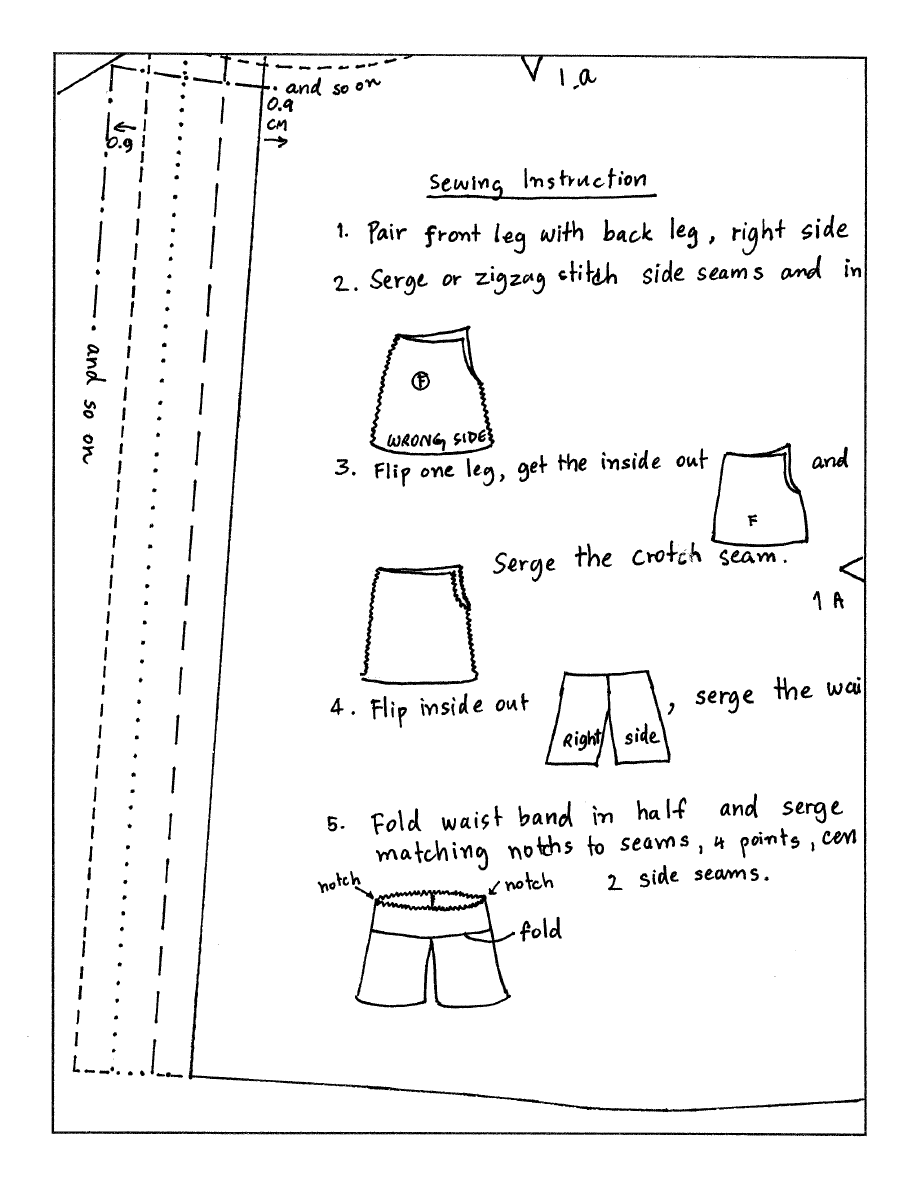 and so on
1_a
0.9
CM
0.9
and so on
Sewing Instruction
1. Pair front leg with back leg, right side
2. Serge or zigzag stitch side seams and in
F
WRONG SIDE
3. Flip one leg, get the inside out
and
F
Serge the crotch seam.
1 A
4. Flip inside out
, serge the wai
Right side
5. Fold waist band in half and serge
matching noths to seams, 4 points, cen
2 side seams.
notch
notch
fold